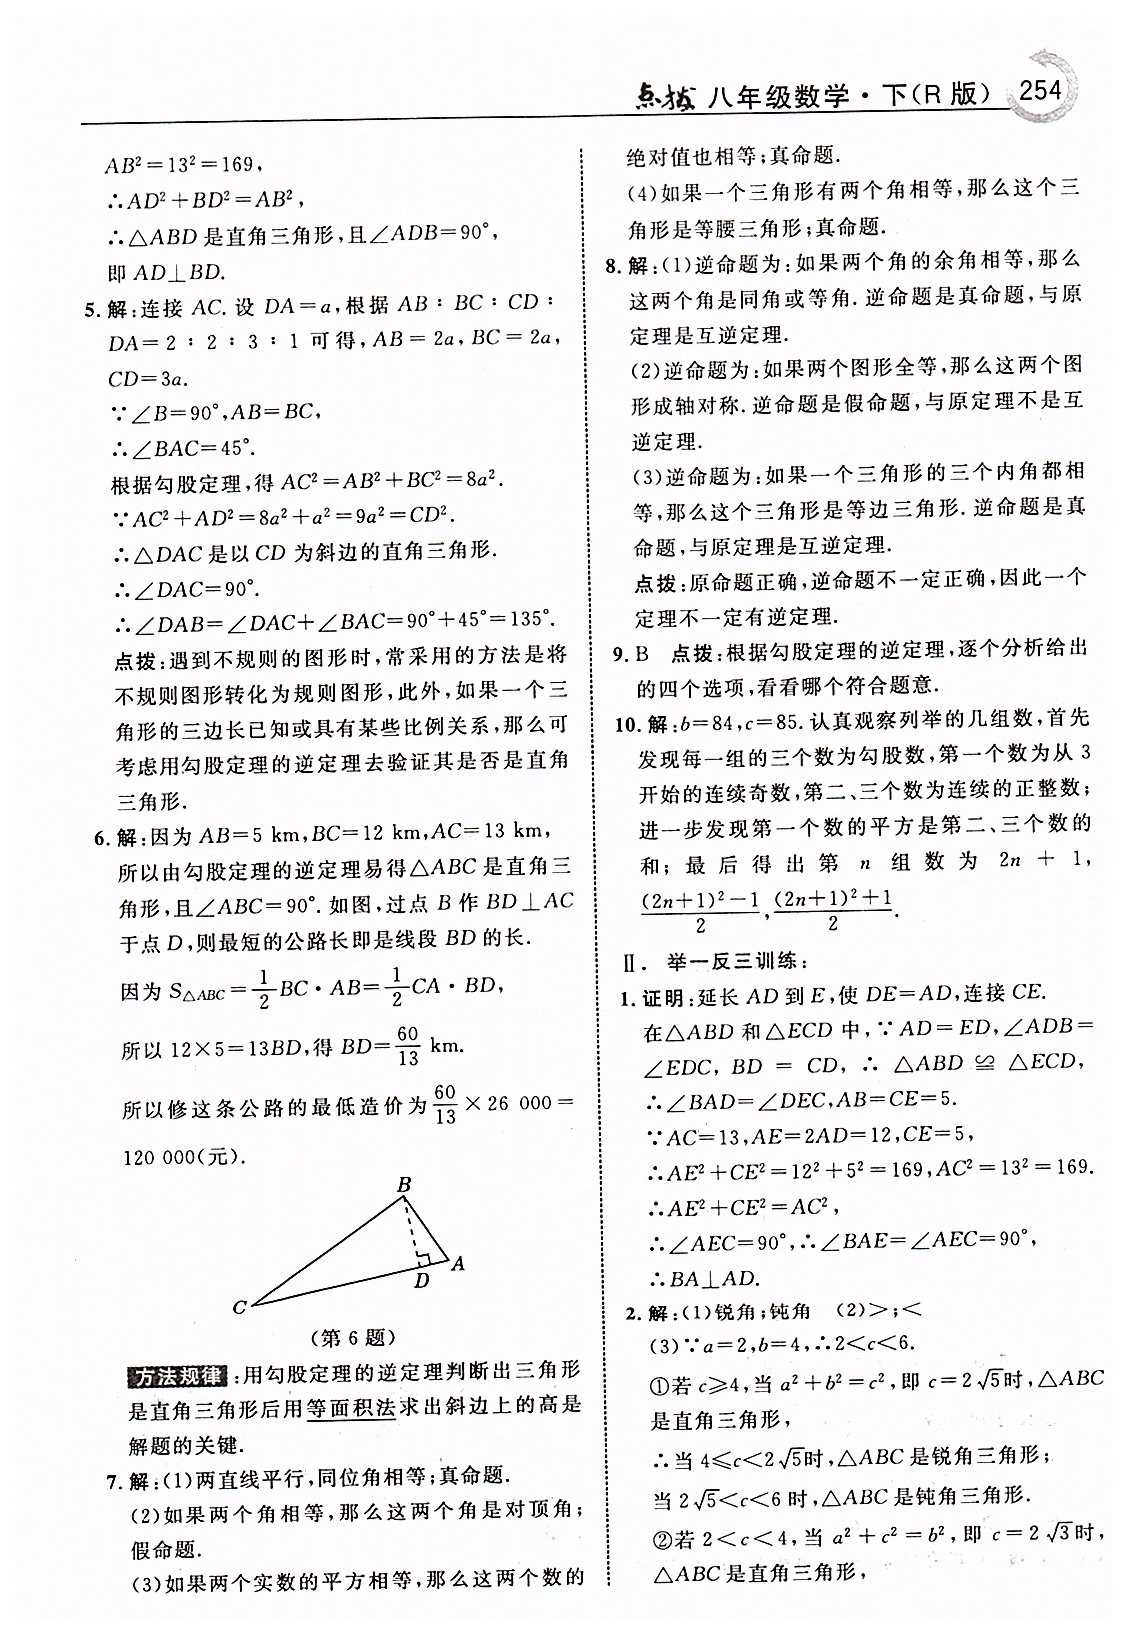 点拨 八年级数学·下(R版) 254
AB²=13²=169,
∴AD²+BD²=AB²,
∴△ABD是直角三角形,且∠ADB=90°,
即AD⊥BD.
5.解:连接AC.设DA=a,根据AB∶BC∶CD∶
DA=2∶2∶3∶1可得,AB=2a,BC=2a,
CD=3a.
∵∠B=90°,AB=BC,
∴∠BAC=45°.
根据勾股定理,得AC²=AB²+BC²=8a².
∵AC²+AD²=8a²+a²=9a²=CD².
∴△DAC是以CD为斜边的直角三角形.
∴∠DAC=90°.
∴∠DAB=∠DAC+∠BAC=90°+45°=135°.
点拨:遇到不规则的图形时,常采用的方法是将
不规则图形转化为规则图形,此外,如果一个三
角形的三边长已知或具有某些比例关系,那么可
考虑用勾股定理的逆定理去验证其是否是直角
三角形.
6.解:因为AB=5 km,BC=12 km,AC=13 km,
所以由勾股定理的逆定理易得△ABC是直角三
角形,且∠ABC=90°.如图,过点B作BD⊥AC
于点D,则最短的公路长即是线段BD的长.
因为S△ABC=1/2BC·AB=1/2CA·BD,
所以12×5=13BD,得BD=60/13 km.
所以修这条公路的最低造价为60/13×26 000=
120 000(元).
B
A
D
C
(第6题)
方法规律:用勾股定理的逆定理判断出三角形
是直角三角形后用等面积法求出斜边上的高是
解题的关键.
7.解:(1)两直线平行,同位角相等;真命题.
(2)如果两个角相等,那么这两个角是对顶角;
假命题.
(3)如果两个实数的平方相等,那么这两个数的
绝对值也相等;真命题.
(4)如果一个三角形有两个角相等,那么这个三
角形是等腰三角形;真命题.
8.解:(1)逆命题为:如果两个角的余角相等,那么
这两个角是同角或等角.逆命题是真命题,与原
定理是互逆定理.
(2)逆命题为:如果两个图形全等,那么这两个图
形成轴对称.逆命题是假命题,与原定理不是互
逆定理.
(3)逆命题为:如果一个三角形的三个内角都相
等,那么这个三角形是等边三角形.逆命题是真
命题,与原定理是互逆定理.
点拨:原命题正确,逆命题不一定正确,因此一个
定理不一定有逆定理.
9.B 点拨:根据勾股定理的逆定理,逐个分析给出
的四个选项,看看哪个符合题意.
10.解:b=84,c=85.认真观察列举的几组数,首先
发现每一组的三个数为勾股数,第一个数为从3
开始的连续奇数,第二、三个数为连续的正整数;
进一步发现第一个数的平方是第二、三个数的
和;最后得出第n组数为2n+1,
((2n+1)²-1)/2,((2n+1)²+1)/2.
Ⅱ.举一反三训练:
1.证明:延长AD到E,使DE=AD,连接CE.
在△ABD和△ECD中,∵AD=ED,∠ADB=
∠EDC,BD=CD,∴△ABD≌△ECD,
∴∠BAD=∠DEC,AB=CE=5.
∵AC=13,AE=2AD=12,CE=5,
∴AE²+CE²=12²+5²=169,AC²=13²=169.
∴AE²+CE²=AC²,
∴∠AEC=90°,∴∠BAE=∠AEC=90°,
∴BA⊥AD.
2.解:(1)锐角;钝角 (2)>;<
(3)∵a=2,b=4,∴2<c<6.
①若c≥4,当a²+b²=c²,即c=2√5时,△ABC
是直角三角形,
∴当4≤c<2√5时,△ABC是锐角三角形;
当2√5<c<6时,△ABC是钝角三角形.
②若2<c<4,当a²+c²=b²,即c=2√3时,
△ABC是直角三角形,